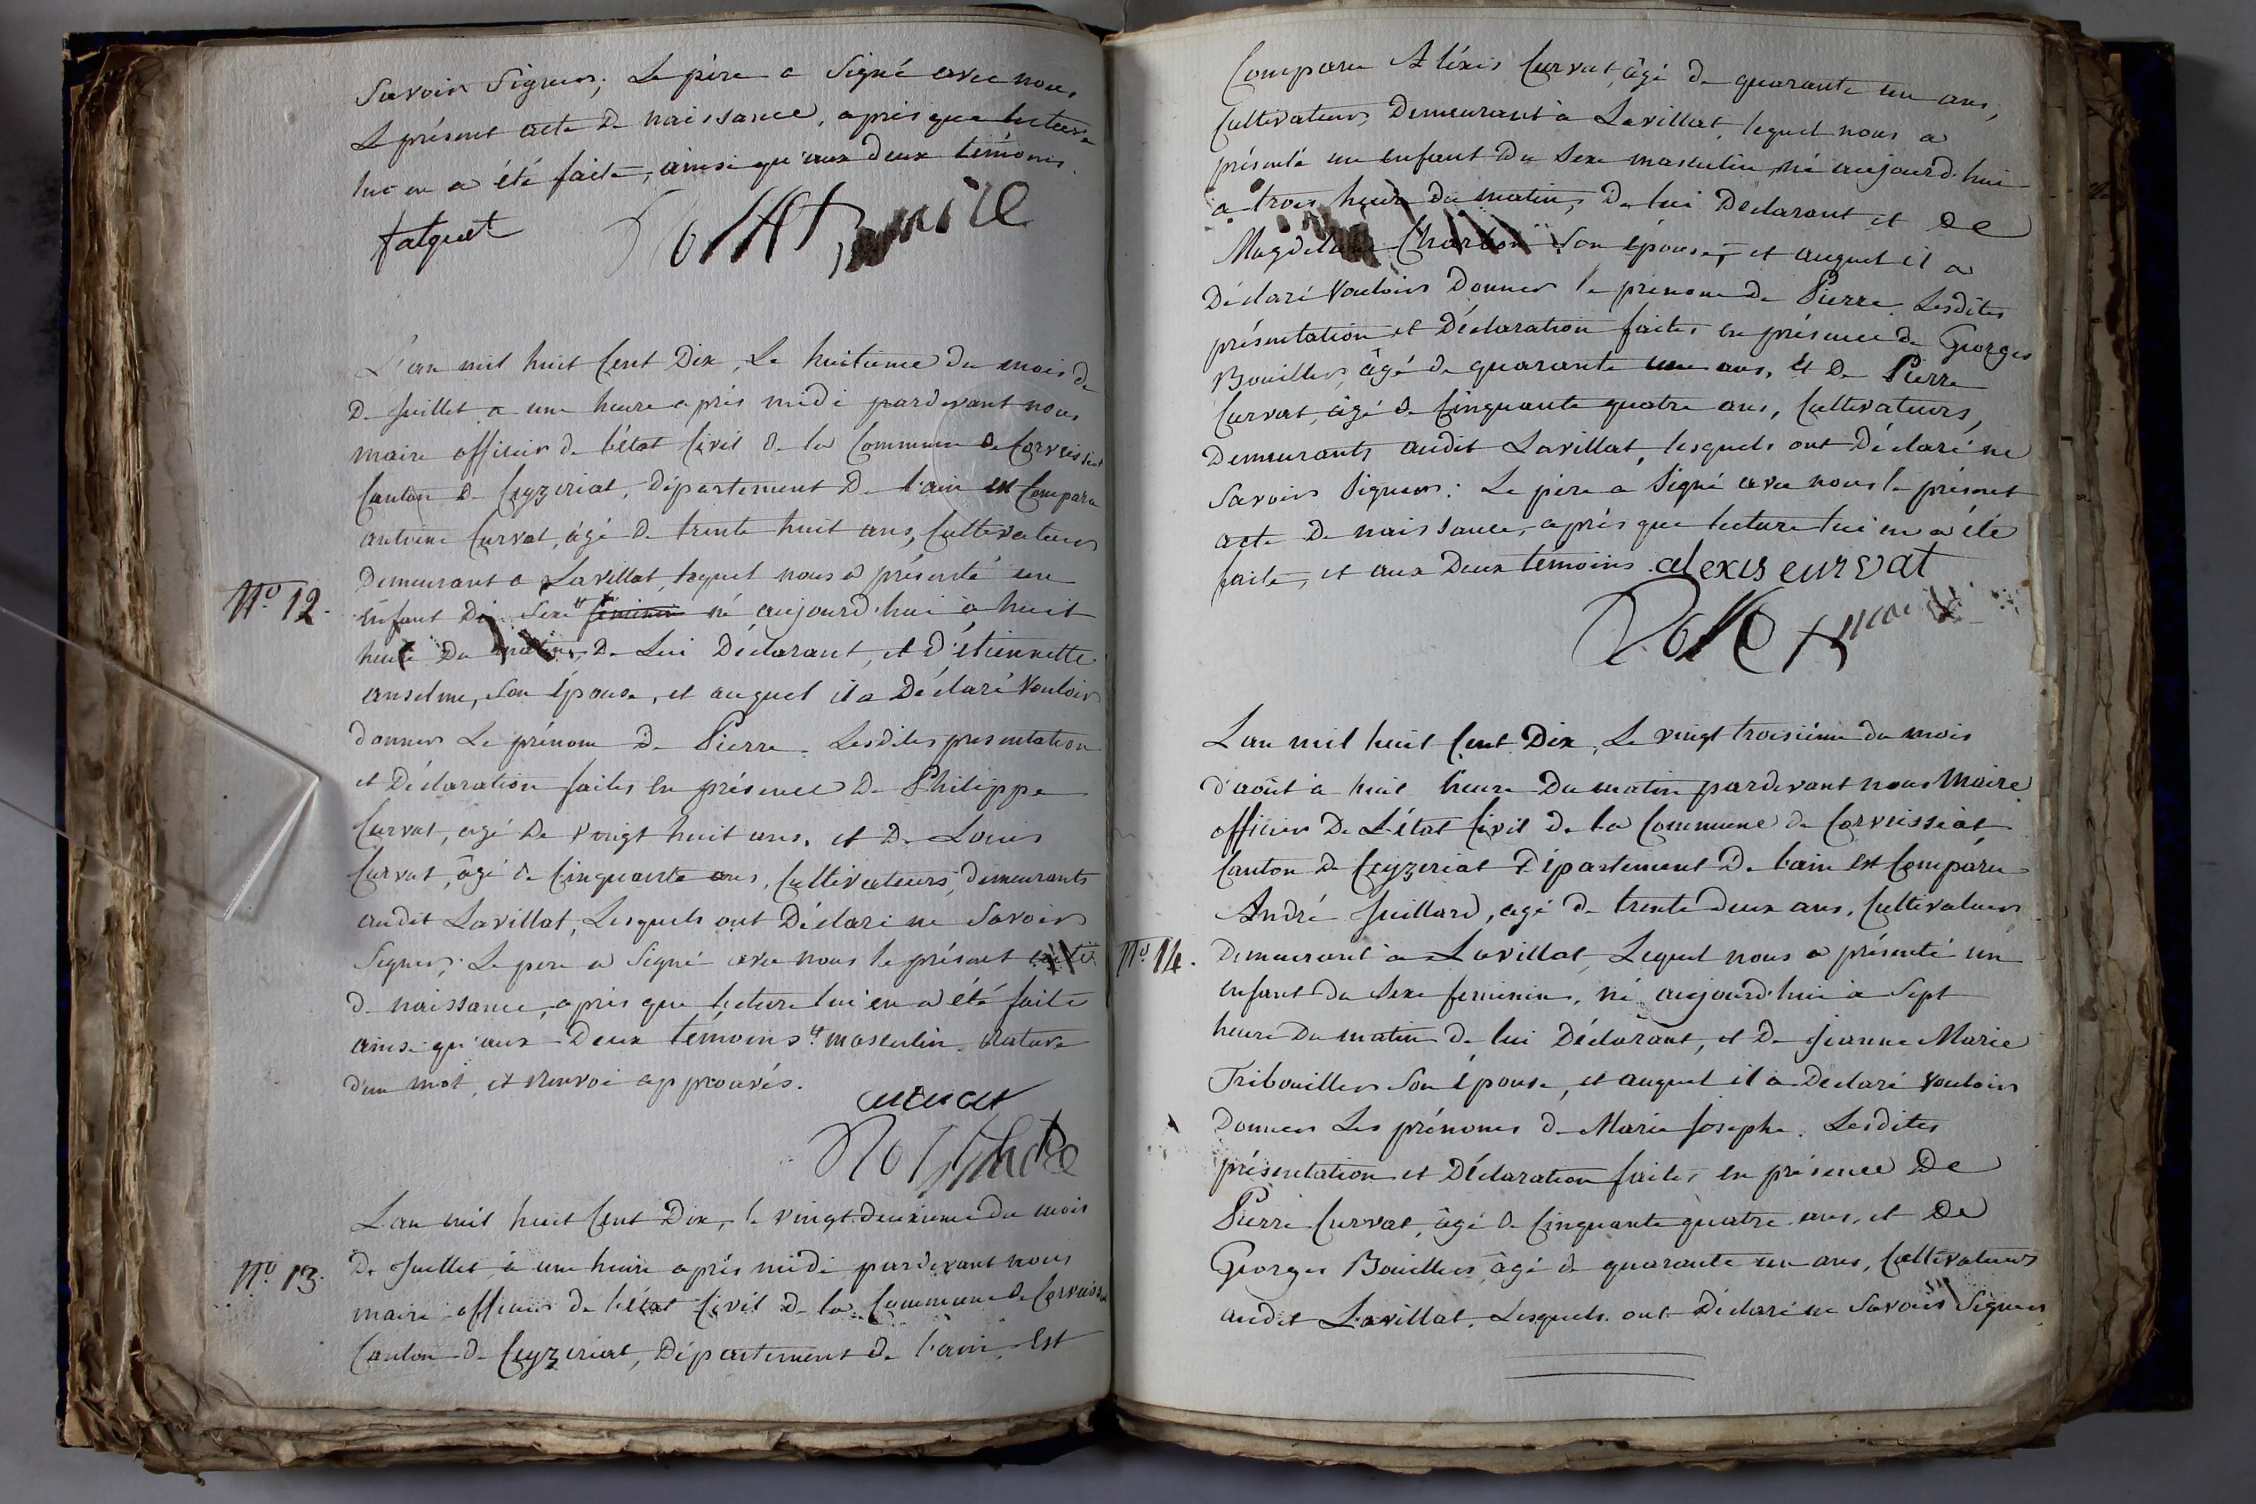 Savoir Signer; Le père a Signé avec nous
Le présent acte de naissance, après que lecture
lui en a été faite, ainsi qu'aux deux témoins.
falquet
maire
L'an mil huit Cent Dix, Le huitieme du mois de
De Juillet a une heure après midi pardevant nous
maire officier de l'état Civil de la Commune de Corveissiat
Canton de Ceyzeriat, Département De l'ain est Comparu
antoine Curvat, âgé de trente huit ans, Cultivateur
Nº 12.
Demeurant a Lavillat, lequel nous a présenté un
enfant du Sexe feminin né aujourd'hui à huit
heure Du matin, De Lui Déclarant, et D'étiennette
anselme, Son Épouse, et auquel il a Déclaré Vouloir
donner Le prénom de Pierre. Lesdites presentation
et Déclaration faites en présence De Philippe
Curvat, agé De vingt huit ans, et De Louis
Curvat, âgé de Cinquante ans, Cultivateurs, demeurants
audit Lavillat, Lesquels ont Déclaré ne Savoir
Signer; Le pere a Signé avec nous le présent acte
de naissance, après que lecture lui en a été faite
ainsi qu'aux Deux temoins " masculin. Rature
d'un mot et Renvoi approuvés.
curvat
Nº 13.
L'an mil huit Cent Dix, le vingt deuxieme du mois
De Juillet à une heure après midi pardevant nous
maire officier de l'état Civil de la Commune de Corveissiat
Canton de Ceyzeriat, Département de l'ain, Est
Comparu Aléxis Curvat, âgé de quarante un ans,
Cultivateur, Demeurant à Lavillat, lequel nous a
présenté un enfant Du Sexe masculin, né aujourd'hui
a trois heure du matin, De lui Déclarant et de
Magdelaine Charbon Son épouse, et auquel il a
Déclaré Vouloir Donner le prenom de Pierre. Lesdites
présentation et Déclaration faites en présence de Georges
Bouiller, âgé de quarante un ans, et De Pierre
Curvat, âgé de Cinquante quatre ans, Cultivateurs,
Demeurants audit Lavillat, lesquels ont Déclaré ne
Savoir Signer: Le père a Signé avec nous le présent
acte De naissance, après que lecture lui en a été
faite, et aux Deux témoins. alexis curvat
maire
L'an mil huit Cent Dix, Le vingt troisième du mois
d'août à huit heure Du matin pardevant nous Maire
officier De L'état Civil de la Commune de Corveissiat
Canton de Ceyzeriat Département De l'ain est Comparu
André Juillard, agé de trente deux ans, Cultivateur
Nº 14.
Demeurant à Lavillat, Lequel nous a présenté un
enfant du Sexe feminin, né aujourd'hui à Sept
heure Du matin de lui Déclarant, et De Jeanne Marie
Tribouiller Son épouse, et auquel il a Declaré vouloir
Donner Les prénoms de Marie Josephe. Lesdites
présentation et Déclaration faites en présence De
Pierre Curvat, âgé de Cinquante quatre ans, et De
Georges Bouiller âgé de quarante un ans, Cultivateurs
audit Lavillat. Lesquels ont Déclaré ne Savoir Signer